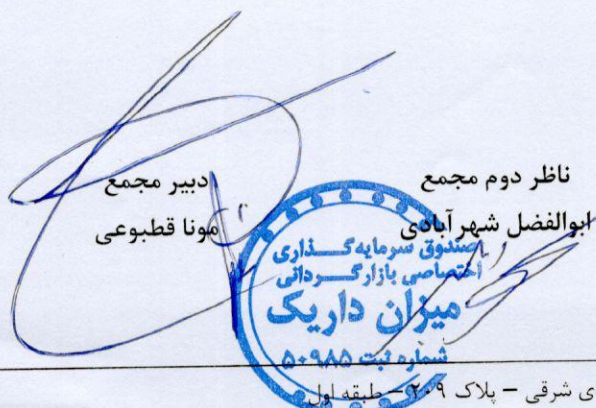 ناظر دوم مجمع
ابوالفضل شهرآبادی
دبیر مجمع
مونا قطبوعی
صندوق سرمایه‌گذاری
اختصاصی بازارگردانی
میزان داریک
شماره ثبت ۵۰۹۸۵
ی شرقی – پلاک ۲۰۹ – طبقه اول